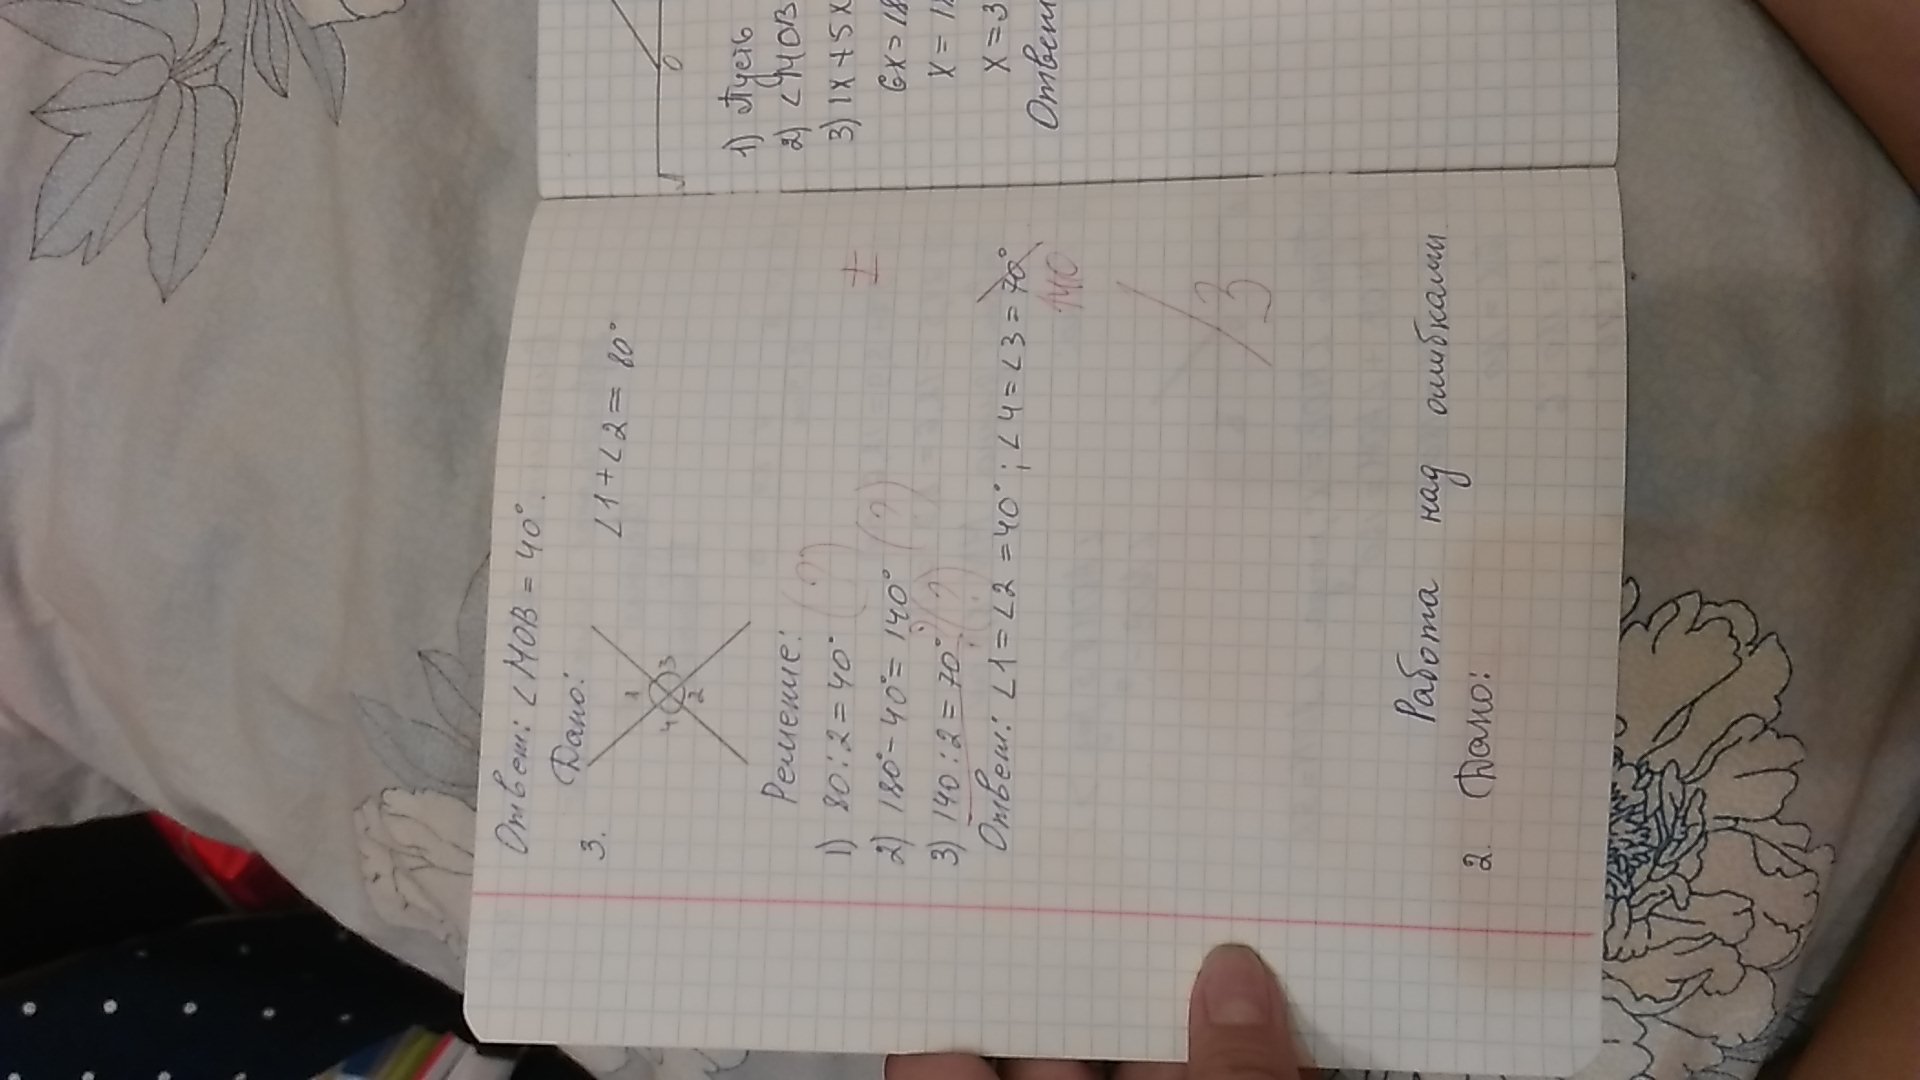 Ответ: ∠MOB = 40°.
3. Дано:
∠1 + ∠2 = 80°
1
4 3
2
Решение:
1) 80 : 2 = 40° (?)
±
2) 180° - 40° = 140° (?)
3) 140 : 2 = 70° (?)
Ответ: ∠1 = ∠2 = 40° ; ∠4 = ∠3 = 70°
140
3
Работа над ошибками
2. Дано:
O
1) Пусть
2) ∠MOB
3) 1x + 5x
6x = 18
x = 1
x = 3
Ответ